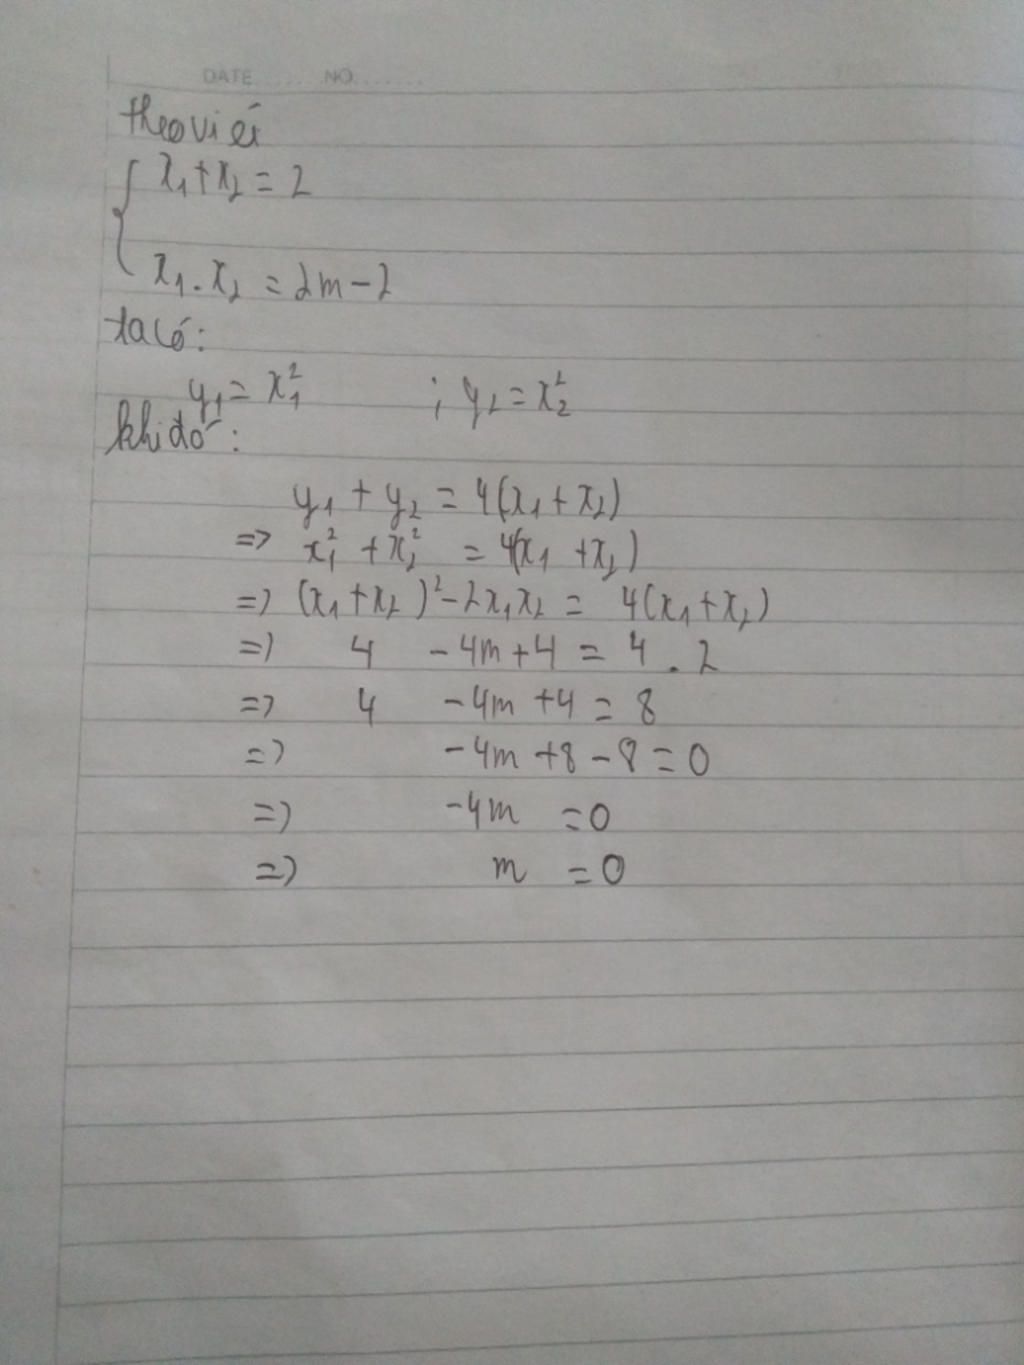 DATE...... NO.......
theo vi ét
{ x₁+x₂ = 2
x₁.x₂ = 2m-2
ta có:
y₁ = x₁² ; y₂ = x₂²
khi đó:
y₁ + y₂ = 4(x₁+x₂)
=> x₁² + x₂² = 4(x₁+x₂)
=> (x₁+x₂)²-2x₁x₂ = 4(x₁+x₂)
=> 4 - 4m+4 = 4.2
=> 4 - 4m +4 = 8
=> -4m +8 - 8 = 0
=> -4m = 0
=> m = 0